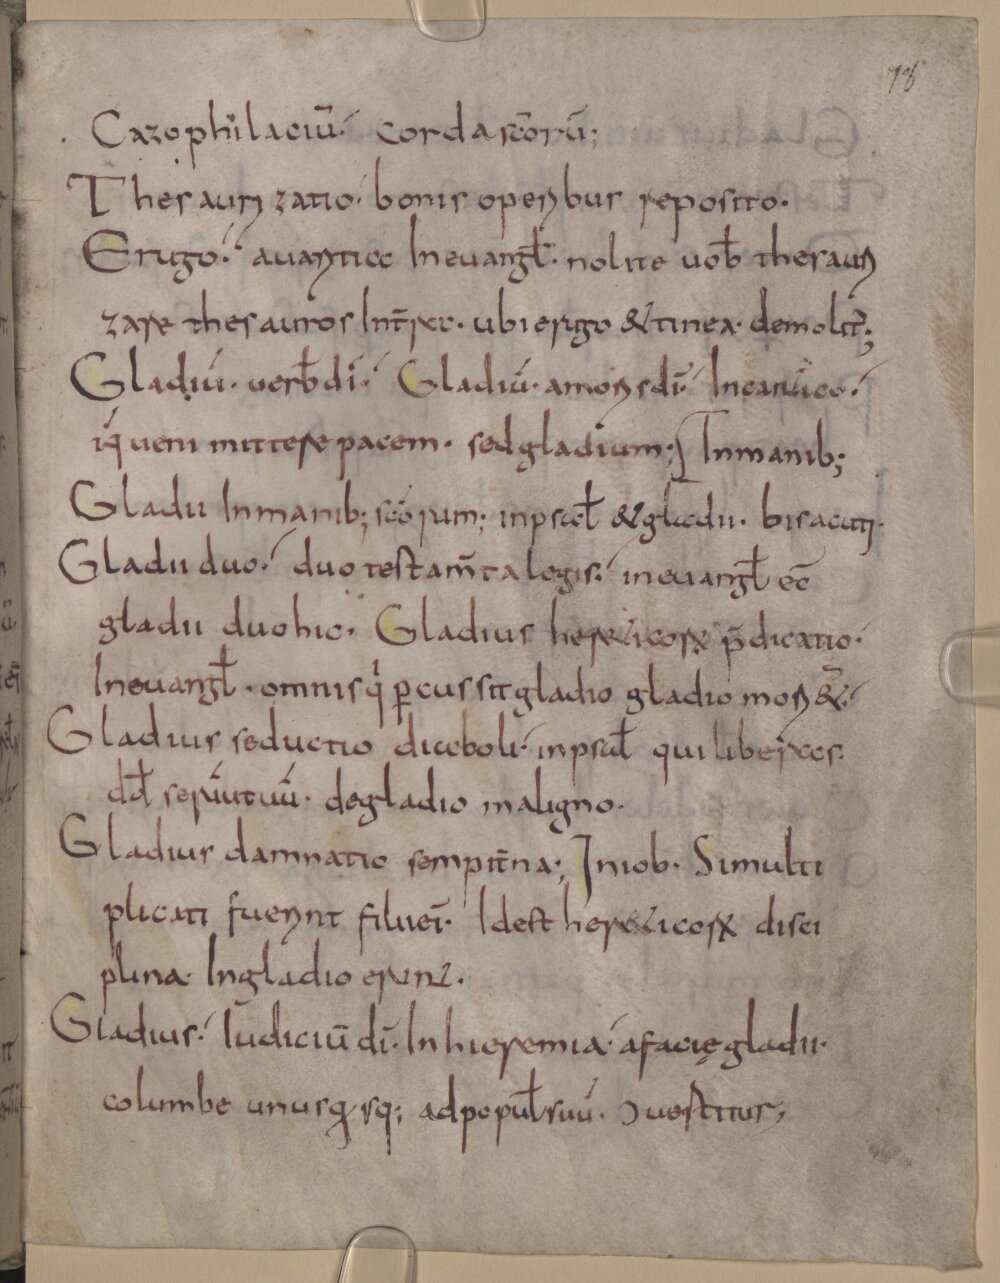 78
Cazophilaciū· cordascōrū;
Thesaurizatio· bonis operibus repositio·
Erugo· auaritiae Ineuangl̄· nolite uob̄ thesauri
zare thesauros Int̄ra· ubi erugo &tinea· demolit̄;
Gladiū· uerb̄ dī· Gladiū· amoris dī· Incantico·
ueni mittere pacem· sed gladium; Inmanib;
Gladii Inmanib; scōrum; inpsal̄ &gladii· bis acuti·
Gladii duo· duo testam̄ta legis· ineuangl̄ ecc̄
gladii duo hic· Gladius hereticorum p̄dicatio·
Ineuangl̄· omnis q percussit gladio gladio mori&·
Gladius seductio diaboli· inpsal̄ qui liberas·
dd̄ seruūtuū· degladio maligno·
Gladius damnatio sempit̄na; Iniob· Si multi
plicati fuerint filii ei· Idest hereticorum disci
plina Ingladio erunt·
Gladius· Iudiciū dī· Inhieremia· afacię gladii·
columbe unusq;sq; adpopul̄ suū· conuertitur;